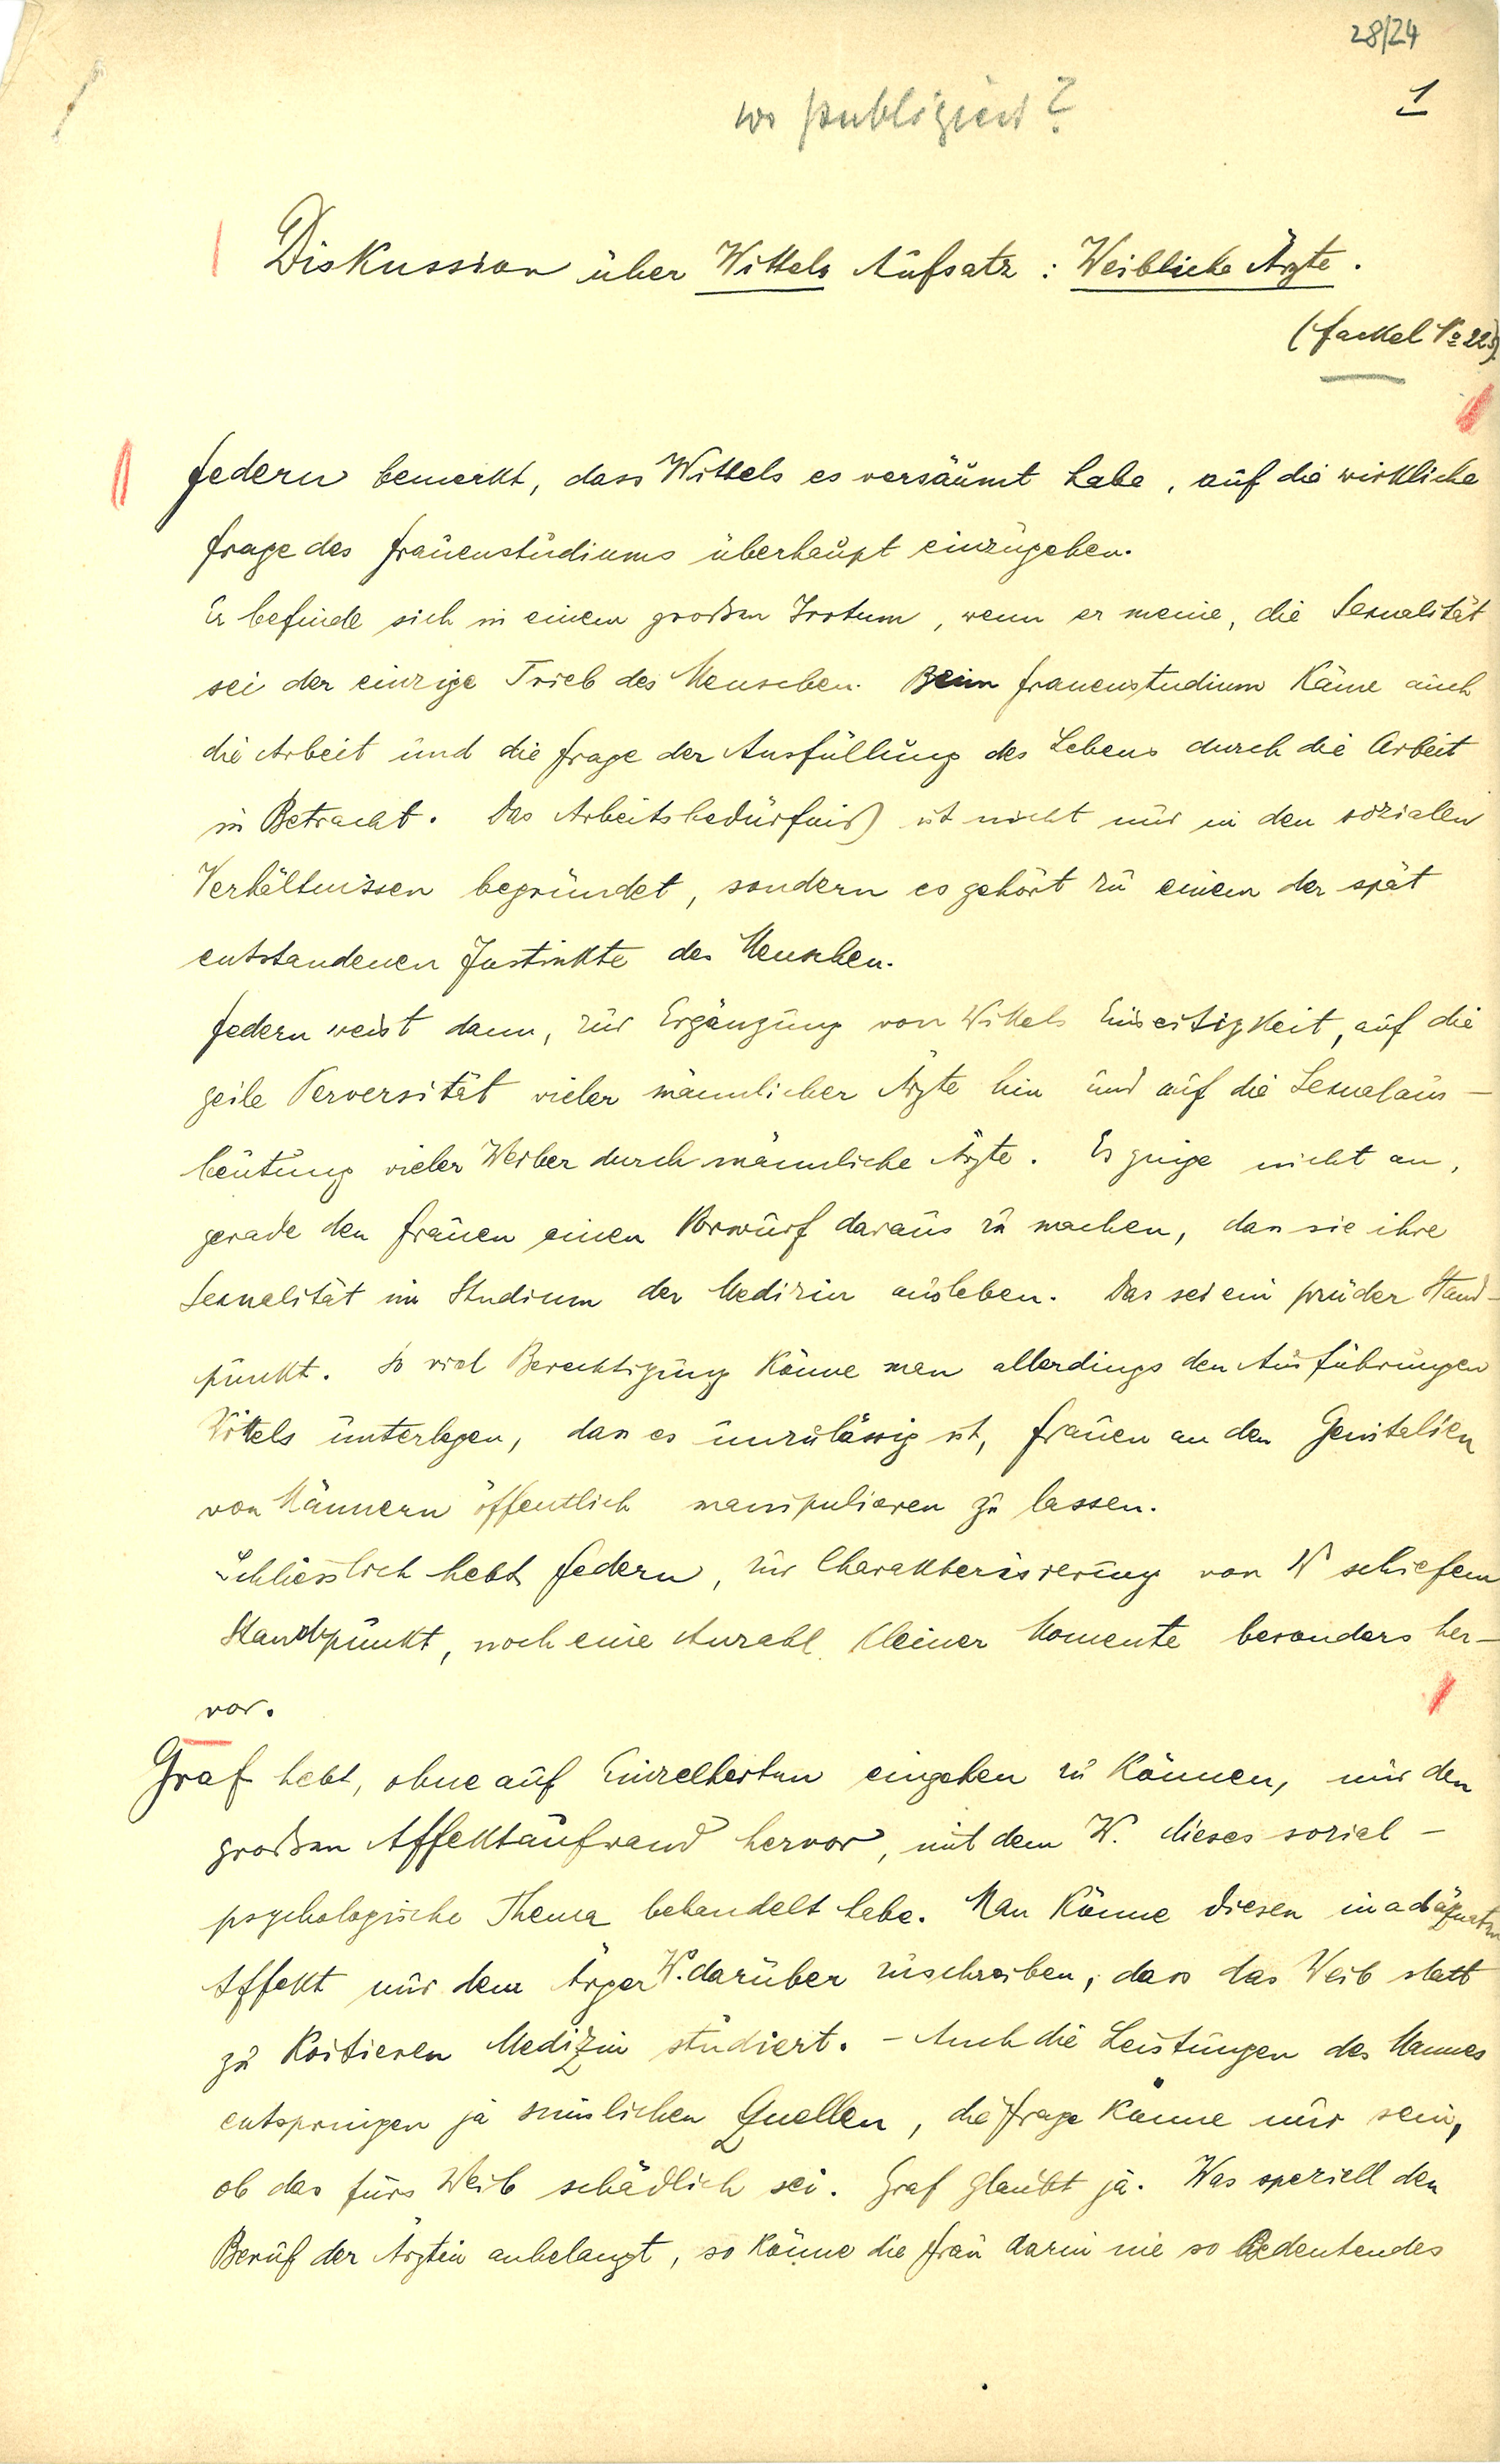 28/24
1
wo publiziert?
Diskussion über Wittels Aufsatz: Weibliche Ärzte.
(Fackel No 225)
Federn bemerkt, dass Wittels es versäumt habe, auf die wirkliche
Frage des Frauenstudiums überhaupt einzugehen.
Er befinde sich in einem großen Irrtum, wenn er meine, die Sexualität
sei der einzige Trieb des Menschen. Beim Frauenstudium käme auch
die Arbeit und die Frage der Ausfüllung des Lebens durch die Arbeit
in Betracht. Das Arbeitsbedürfnis ist nicht nur in den sozialen
Verhältnissen begründet, sondern es gehört zu einem der spät
entstandenen Instinkte des Menschen.
Federn weist dann, zur Ergänzung von Wittels Einseitigkeit, auf die
geile Perversität vieler männlicher Ärzte hin und auf die Sexualaus-
beutung vieler Weiber durch männliche Ärzte. Es ginge nicht an,
gerade den Frauen einen Vorwurf daraus zu machen, dass sie ihre
Sexualität im Studium der Medizin ausleben. Das sei ein prüder Stand-
punkt. So viel Berechtigung könne man allerdings den Ausführungen
Wittels unterlegen, dass es unzulässig ist, Frauen an den Genitalien
von Männern öffentlich manipulieren zu lassen.
Schliesslich hebt Federn, zur Charakterisierung von W schiefem
Standpunkt, noch eine Anzahl kleiner Momente besonders her-
vor.
Graf hebt, ohne auf Einzelheiten eingehen zu können, nur den
großen Affektaufwand hervor, mit dem W. dieses sozial-
psychologische Thema behandelt habe. Man könne diesen inadäquaten
Affekt nur dem Ärger W. darüber zuschreiben, dass das Weib statt
zu koitieren Medizin studiert. - Auch die Leistungen des Mannes
entspringen ja sinnlichen Quellen, die Frage könne nur sein,
ob das fürs Weib schädlich sei. Graf glaubt ja. Was speziell den
Beruf der Ärztin anbelangt, so könne die Frau darin nie so Bedeutendes